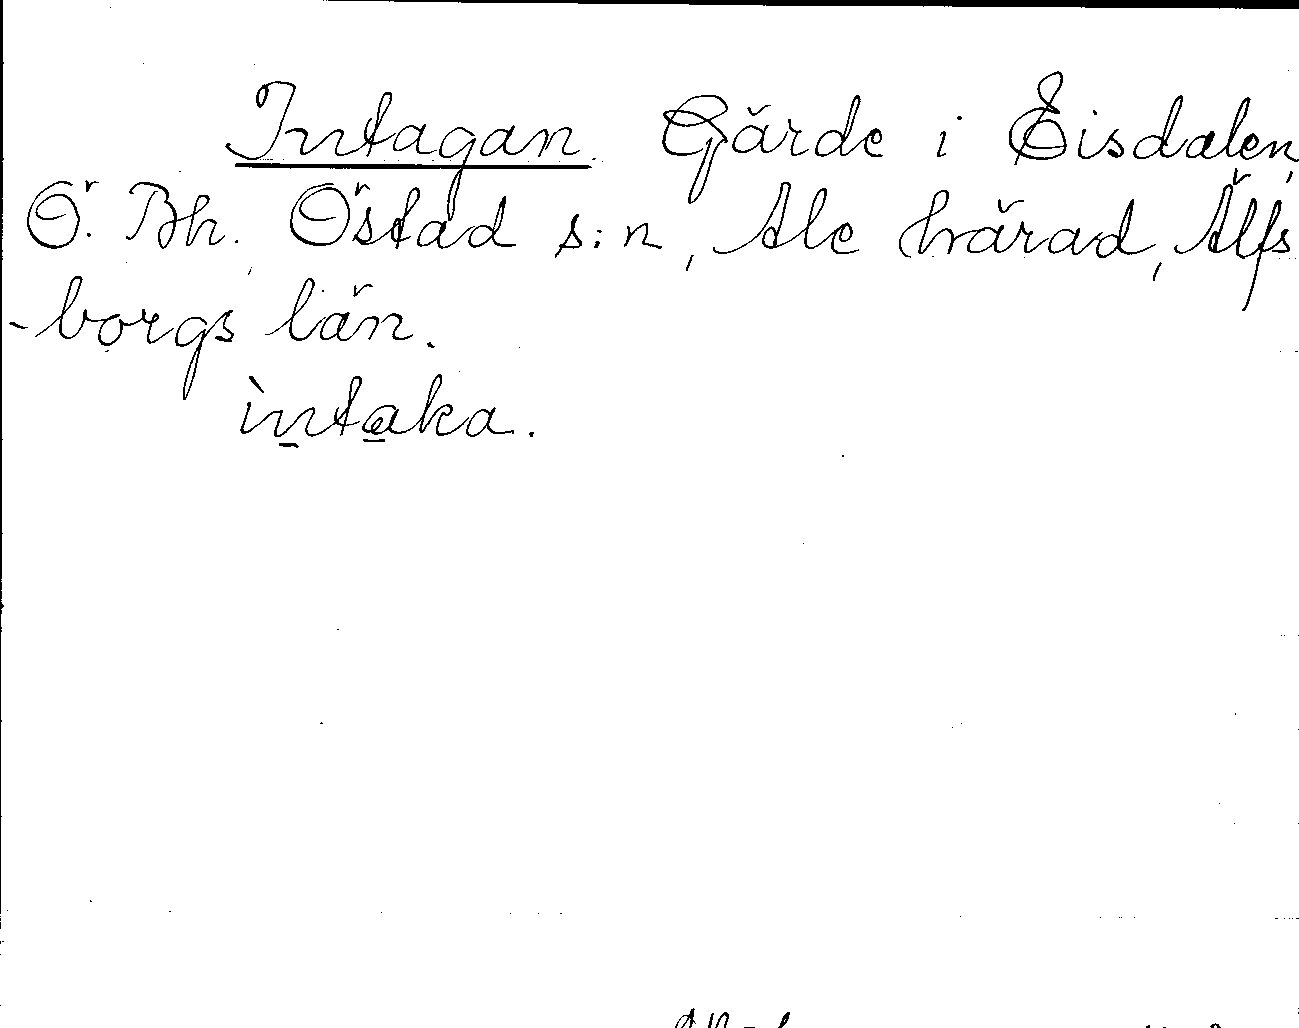 Intagan. Gärde i Eisdalen,
Ö. Bh. Östad s:n, Ale härad, Älfs
-borgs län.
ìntaka.